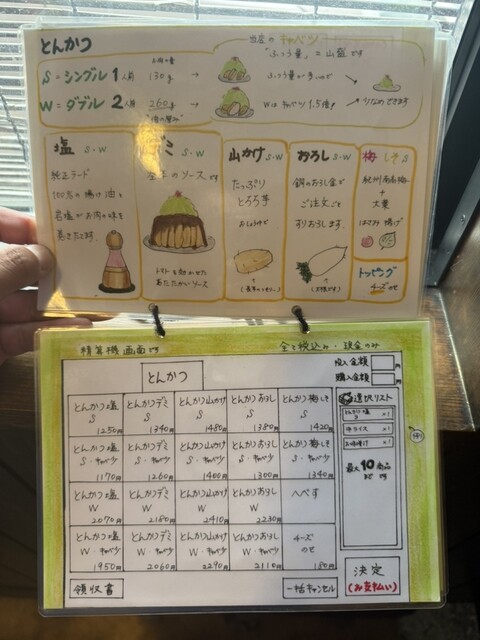 とんかつ
当店の キャベツ
"ふつう量" = 山盛 です
お肉の量
S = シングル 1人前 130g →
ふつう量が多いので
W = ダブル 2人前 260g →
Wは キャベツ 1.5倍!
少なめできます
塩 S・W
純正ラード
100%の揚げ油と
岩塩がお肉の味を
ミ S・W
のソースです
トマトを効かせた
あたたかいソース
山かけ S・W
たっぷり
とろろ芋
おろし S・W
銅のおろし金で
ご注文で
すりおろします。
(大根です)
梅しそ S
紀州南高梅
+
大葉
はさみ揚げ
トッピング
チーズのせ
精算機画面です
全て税込み・現金のみ
とんかつ
投入金額 円
購入金額 円
選択リスト
とんかつ塩 S 1250円
とんかつデミ S 1340円
とんかつ山かけ S 1480円
とんかつおろし S 1380円
とんかつ梅しそ S 1420円
とんかつ塩 S・キャベツ少 1170円
とんかつデミ S・キャベツ少 1260円
とんかつ山かけ S・キャベツ少 1400円
とんかつおろし S・キャベツ少 1300円
とんかつ梅しそ S・キャベツ少 1340円
とんかつ塩 W 2070円
とんかつデミ W 2180円
とんかつ山かけ W 2410円
とんかつおろし W 2230円
とんかつ塩 W・キャベツ少 1950円
とんかつデミ W・キャベツ少 2060円
とんかつ山かけ W・キャベツ少 2290円
とんかつおろし W・キャベツ少 2110円
チーズのせ 180円
とんかつ塩 S ×1
中ライス ×1
×1
最大10商品
まで です
領収書
一括キャンセル
決定
(お支払い)